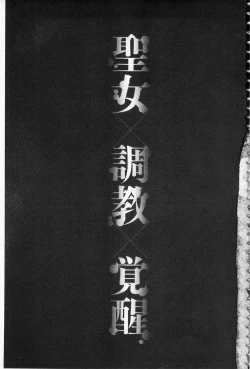 聖女×調教×覚醒.